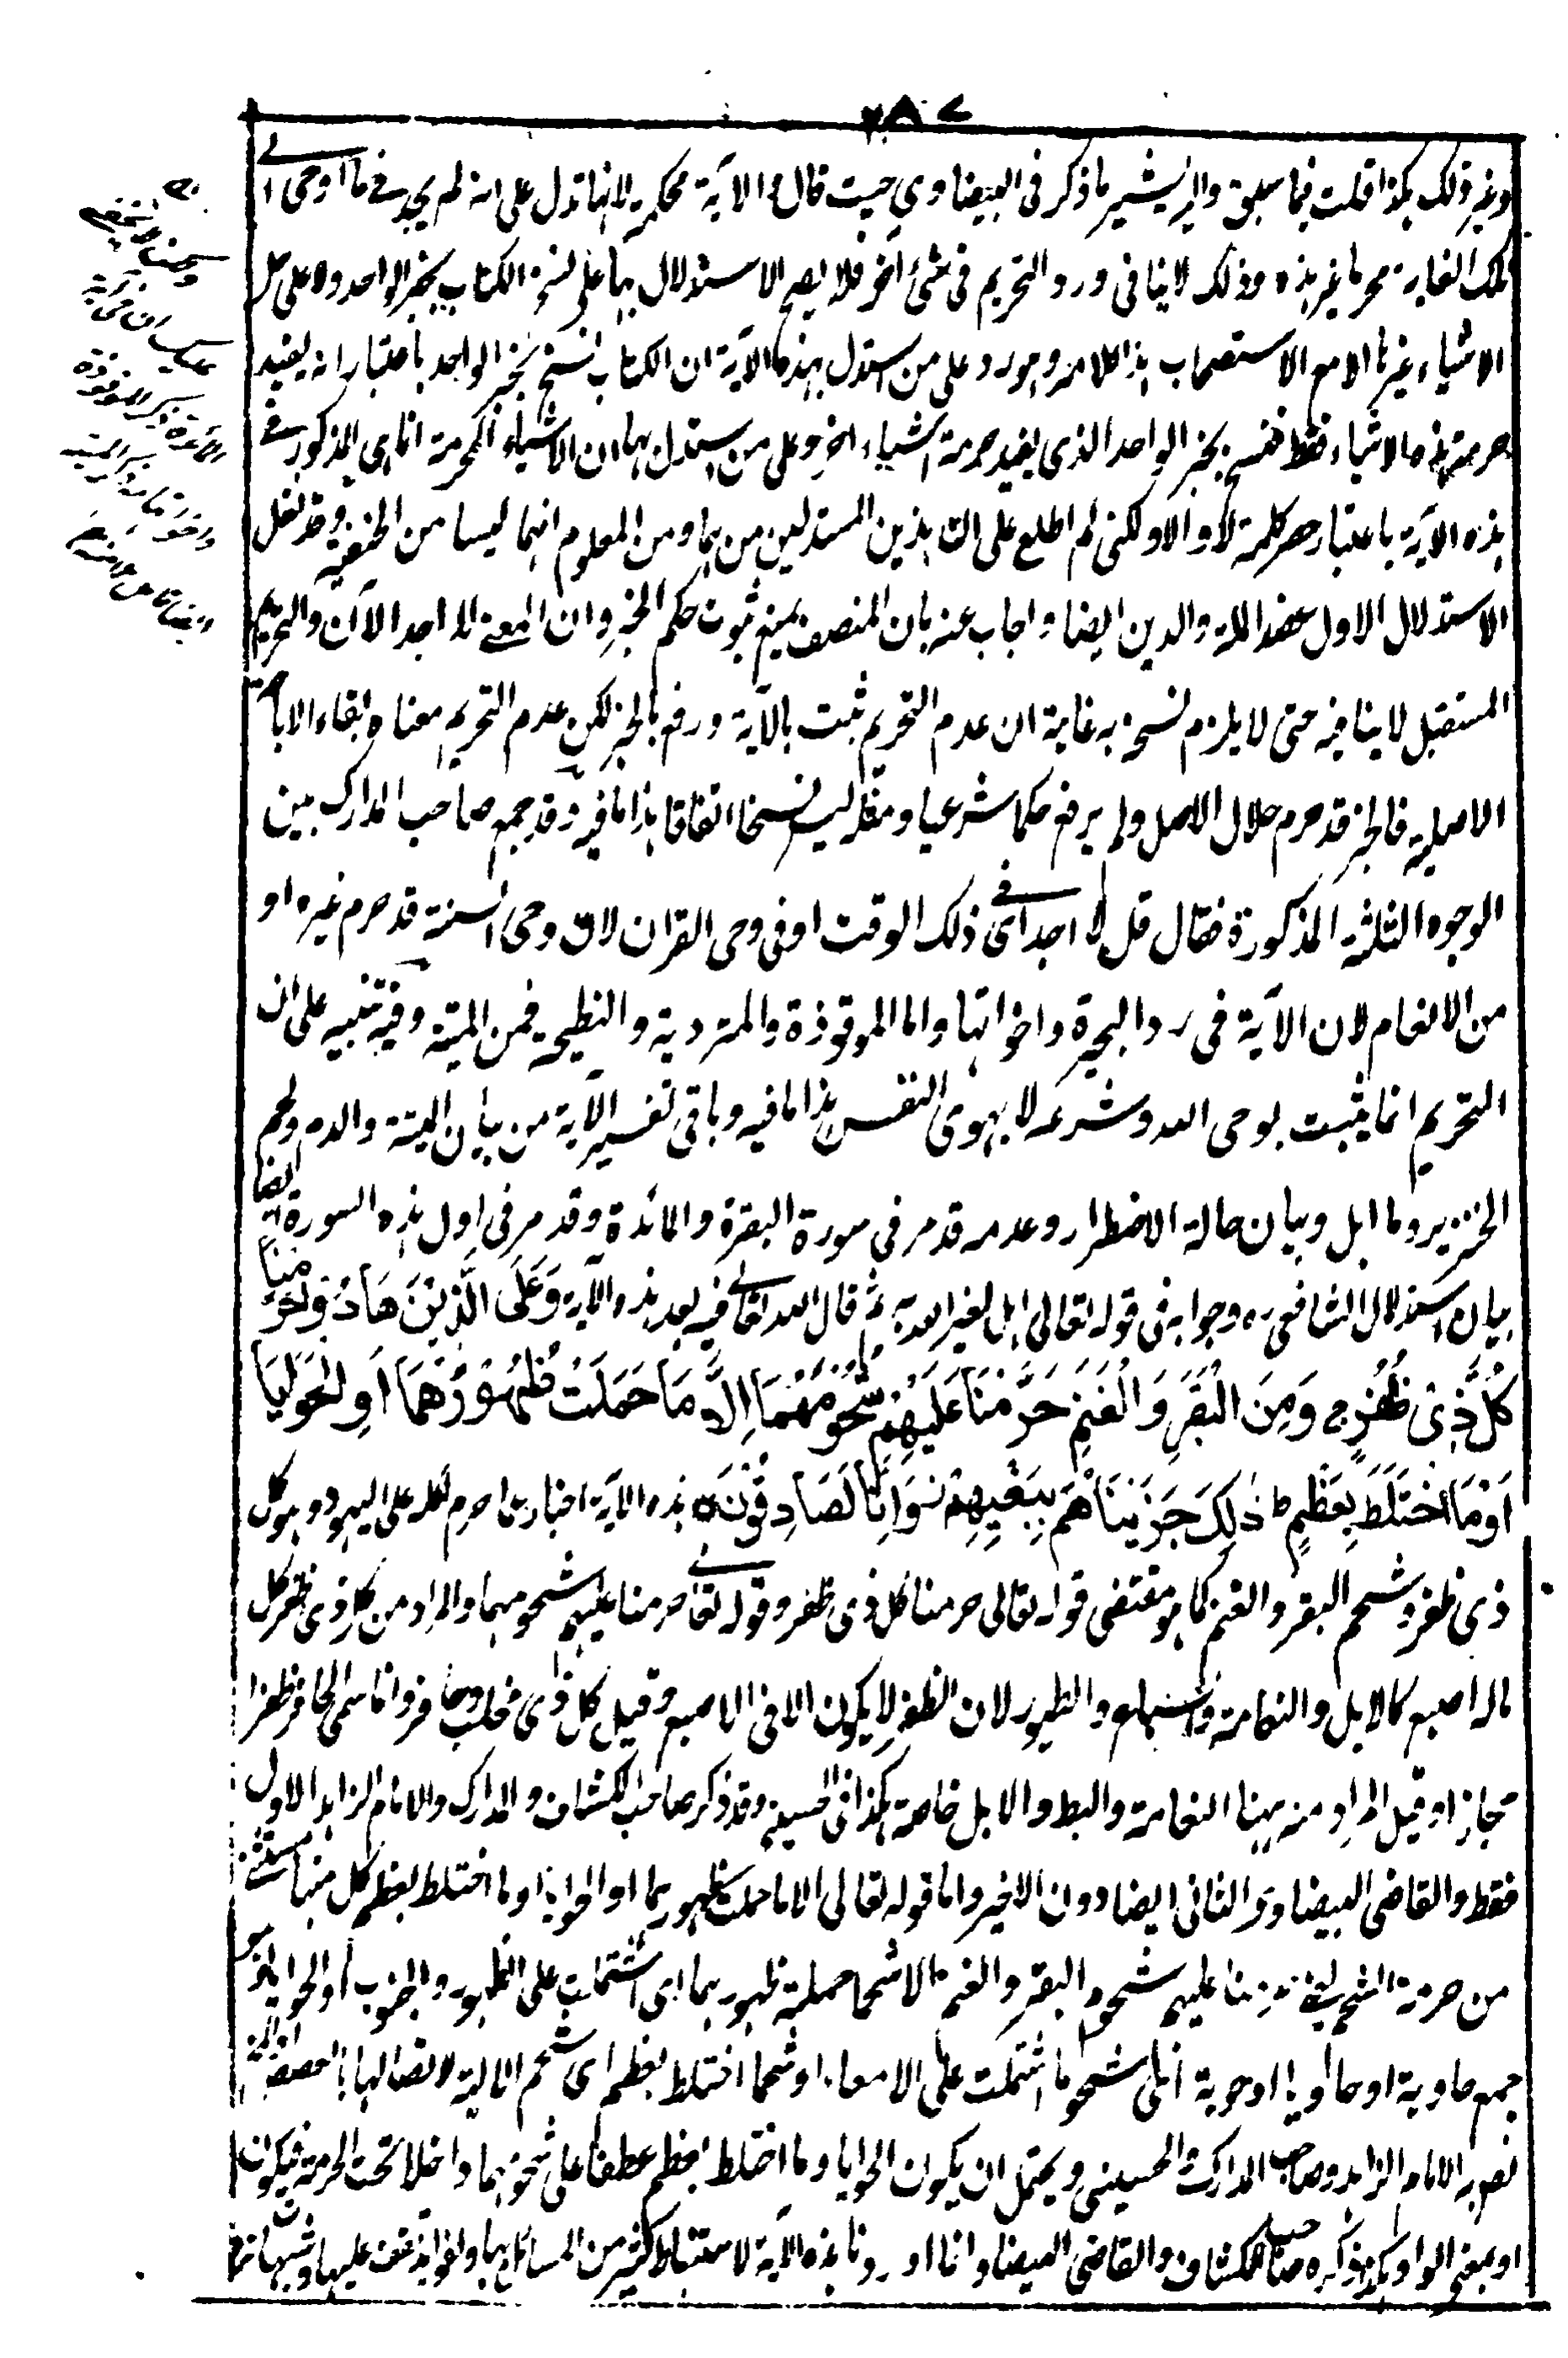 ٢٥٧
وغير ذلك هكذا قلت فيما سبق واليه يشير ما ذكر في البيضاوي حيث قال والآية محكمة لانها تدل على انه لم يجد في ما اوحى الى
تلك الغاية محرما غير هذه وذلك لا ينافي ورود التحريم في شئ آخر فلا يصح الاستدلال بها على نسخ الكتاب بخبر الواحد ولا على حل
الاشياء غيرها الا مع الاستصحاب هذا كلامه وهو رد على من استدل بهذه الآية ان الكتاب نسخ بخبر الواحد باعتبار انه يفيد
حرمة هذه الاشياء فقط فنسخ بخبر الواحد الذي يفيد حرمة اشياء اخر وعلى من استدل بها ان الاشياء المحرمة انما هي المذكور في
هذه الآية باعتبار حصر كلمة لا والا ولكني لم اطلع على ان هذين المستدلين من هما ومن المعلوم انهما ليسا من الحنفية وقد نقل
الاستدلال الاول عضد الملة والدين ايضا واجاب عنه بان المنصف يمنع ثبوت حكم الخبر وان المعنى لا اجد الآن والتحريم
المستقبل لا ينافيه حتى لا يلزم نسخه به غاية ان عدم التحريم ثبت بالآية ورفع بالخبر لكن عدم التحريم معناه بقاء الاباحة
الاصلية فالخبر قد حرم حلال الاصل ولم يرفع حكما شرعيا ومثله ليس نسخا اتفاقا هذا ما فيه وقد جمع صاحب المدارك بين
الوجوه الثلثة المذكورة فقال قل لا اجد اى في ذلك الوقت او في وحى القران لان وحى السنة قد حرم غيره او
من الانعام لان الآية في رد البحيرة واخواتها واما الموقوذة والمتردية والنطيحة فمن الميتة وفيه تنبيه على ان
التحريم انما يثبت بوحى الله وشرعه لا بهوى النفس هذا ما فيه وباقي تفسير الآية من بيان الميتة والدم ولحم
الخنزير وما اهل وبيان حالة الاضطرار وعدمه قد مر في سورة البقرة والمائدة وقد مر في اول هذه السورة ايضا
بيان استدلال الشافعي ره وجوابه في قوله تعالى اهل لغير الله به ثم قال الله تعالى فيه بعد هذه الآية وَعَلَى الَّذِيْنَ هَادُوْا حَرَّمْنَا
كُلَّ ذِيْ ظُفُرٍ ج وَمِنَ الْبَقَرِ وَالْغَنَمِ حَرَّمْنَا عَلَيْهِمْ شُحُوْمَهُمَا اِلَّا مَا حَمَلَتْ ظُهُوْرُهُمَا اَوِ الْحَوَايَا
اَوْ مَا اخْتَلَطَ بِعَظْمٍ ط ذٰلِكَ جَزَيْنَاهُمْ بِبَغْيِهِمْ وَاِنَّا لَصَادِقُوْنَ ه هذه الآية اخبار بما حرم الله على اليهود وهو كل
ذى ظفر وشحم البقر والغنم كما هو مقتضى قوله تعالى حرمنا كل ذى ظفر وقوله تعالى حرمنا عليهم شحومهما والمراد من كل ذى ظفر كل
ما له اصبع كالابل والنعامة والسباع والطيور لان الظفر لا يكون الا في الاصبع وقيل كل ذى مخلب وحافر وانما سمى الحافر ظفرا
مجازا وقيل المراد منه ههنا النعامة والبط والابل خاصة هكذا في الحسيني وقد ذكر صاحب الكشاف والمدارك والامام الزاهد الاول
فقط والقاضى البيضاوى الثانى ايضا دون الاخير واما قوله تعالى الا ما حملت ظهورهما او الحوايا او ما اختلط بعظم كل منها مستثنى
من حرمة الشحم يعنى حرمنا عليهم شحوم البقر والغنم الا شحما حملته ظهورهما اى اشتملت على الظهور والجنوب او الحوايا وهو
جمع حاوية او حاوياء او حوية اى شحوما اشتملت على الامعاء او شحما اختلط بعظم اى شحم الالية لاتصالها بالعصعص
نص به الامام الزاهد وصاحب المدارك والحسينى ويحتمل ان يكون الحوايا وما اختلط بعظم عطفا على شحومهما داخلا تحت الحرمة فيكون
او بمعنى الواو هكذا ذكره صاحب الكشاف والقاضى البيضاوى وانما اوردنا هذه الآية لاستنباط كثير من المسائل بها